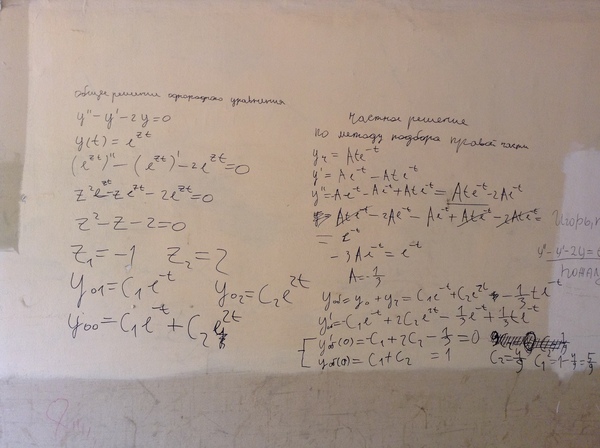 общее решение однородного уравнения
y'' - y' - 2y = 0
y(t) = e^{zt}
(e^{zt})'' - (e^{zt})' - 2e^{zt} = 0
z²e^{zt} - ze^{zt} - 2e^{zt} = 0
z² - z - 2 = 0
z₁ = -1 z₂ = 2
y₀₁ = C₁e^{-t} y₀₂ = C₂e^{2t}
y₀₀ = C₁e^{-t} + C₂e^{2t}
частное решение
по методу подбора правой части
yᵣ = Ate^{-t}
y' = Ae^{-t} - Ate^{-t}
y'' = -Ae^{-t} - Ae^{-t} + Ate^{-t} = Ate^{-t} - 2Ae^{-t}
Ate^{-t} - 2Ae^{-t} - Ae^{-t} + Ate^{-t} - 2Ate^{-t} =
= e^{-t}
-3Ae^{-t} = e^{-t}
A = -1/3
= y₀ + yᵣ = C₁e^{-t} + C₂e^{2t} - 1/3 te^{-t}
= -C₁e^{-t} + 2C₂e^{2t} - 1/3 e^{-t} + 1/3 te^{-t}
(0) = -C₁ + 2C₂ - 1/3 = 0
(0) = C₁ + C₂ = 1 C₂ = 4/9 C₁ = 1 - 4/9 = 5/9
Игорь,
y'' - y' - 2y =